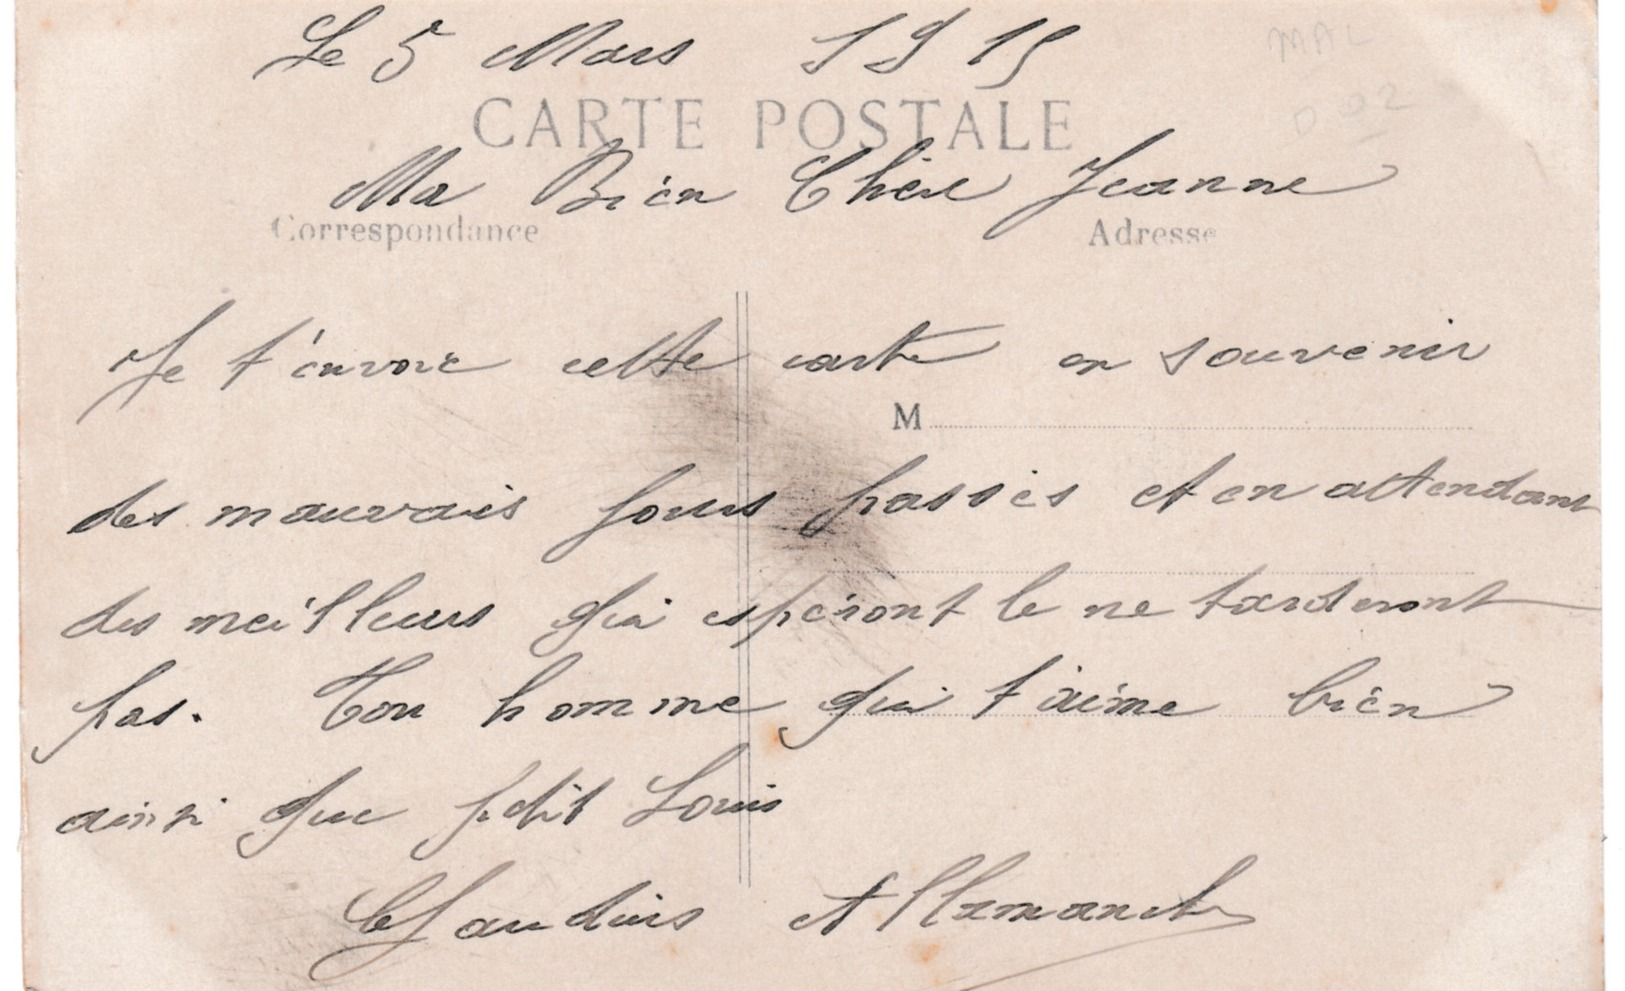 Le 5 Mars 1915
MAL
CARTE POSTALE
D 02
Ma Bien Chére Jeanne
Correspondance
Adresse
Je t'envoie cette carte en souvenir
M
des mauvais jours passés et en attendant
des meilleurs qui espéront le ne tarderont
pas. Ton homme qui t'aime bien
ainsi que petit Louis
Claudius Allemand